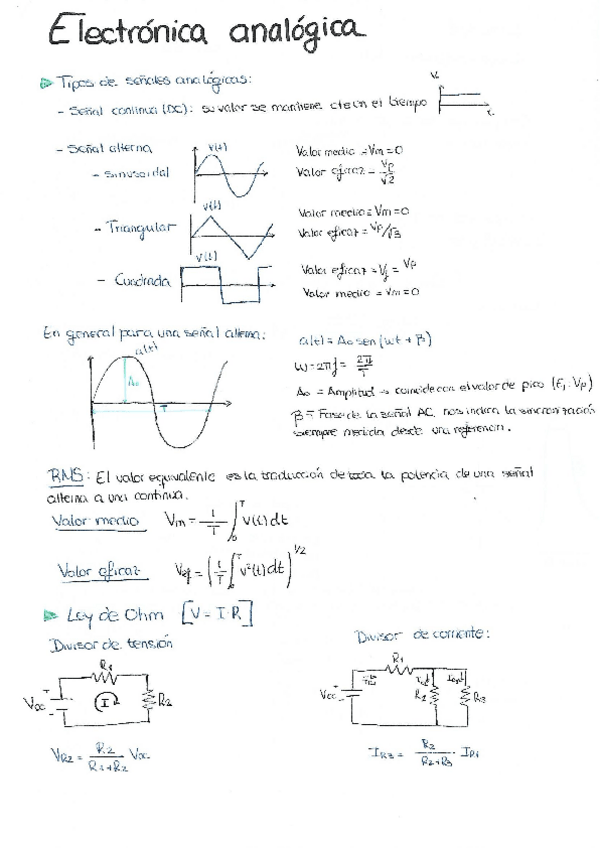 Electrónica analógica
Tipos de señales analógicas:
- Señal continua (DC): su valor se mantiene cte en el tiempo
V
t
- Señal alterna
- Sinusoidal
V(t)
Valor medio = Vm = 0
Valor eficaz = Vp/√2
- Triangular
V(t)
Valor medio = Vm = 0
Valor eficaz = Vp/√3
- Cuadrada
V(t)
Valor eficaz = Vf = Vp
Valor medio = Vm = 0
En general para una señal alterna:
a(t)
A₀
T
a(t) = A₀ sen (wt + β)
W = 2πf = 2π/T
A₀ = Amplitud → coincide con el valor de pico (Ej: Vp)
β = Fase de la señal AC, nos indica la sincronización
siempre medida desde una referencia.
RMS: El valor equivalente es la traducción de toda la potencia de una señal
alterna a una continua.
Valor medio Vm = 1/T ∫₀ᵀ v(t) dt
Valor eficaz Vef = (1/T ∫₀ᵀ v²(t) dt)^1/2
Ley de Ohm [V = I·R]
Divisor de tensión
R1
Vcc
I
R2
VR2 = R2/(R1+R2) Vcc
Divisor de corriente:
R1
Vcc
R2
R3
IR3 = R2/(R2+R3) · IR1